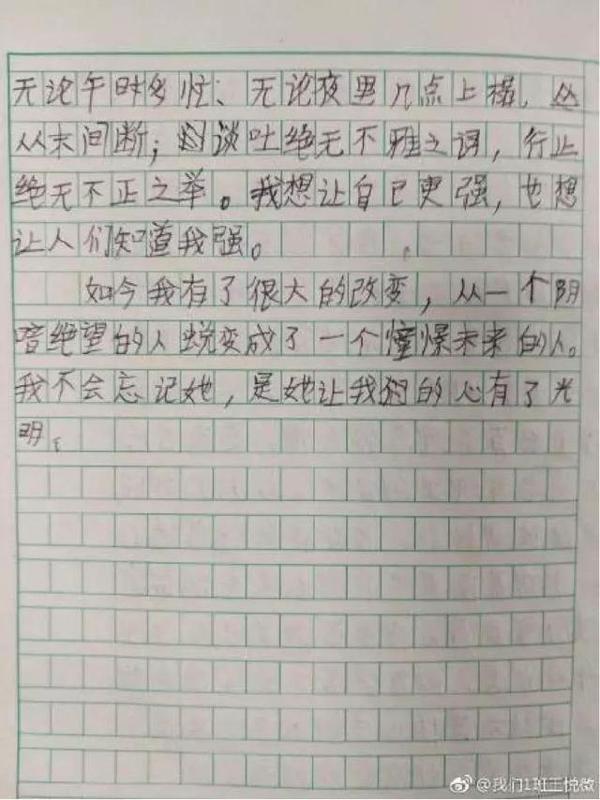 无论午时多忙、无论夜里几点上榻,
从未间断;谈吐绝无不雅之词,行止
绝无不正之举。我想让自已更强,也想
让人们知道我强。
如今我有了很大的改变,从一个阴
暗绝望的人蜕变成了一个憧憬未来的人。
我不会忘记她,是她让我的心有了光
明。
@我们1班王悦微